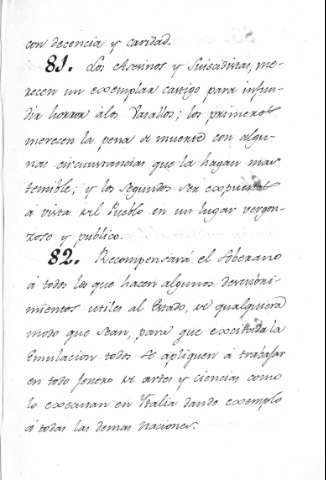 con decencia y caridad.
81. Los Asesinos y Suicidas, me-
recen un exemplar castigo para infun-
dir horror álos Vasallos; los primeros
merecen la pena de muerte con algu-
nas circunstancias que la hagan mas
temible; y los segundos ser expuestos
á vista del Pueblo en un lugar vergon-
zoso y publico.
82. Recompensará el Soberano
á todos los que hacen algunos descubri-
mientos utiles al Estado, de qualquiera
modo que sean, para que excitada la
Emulacion todos se apliquen á trabajar
en todo genero de artes y ciencias como
lo executan en Italia dando exemplo
á todas las demas Naciones.